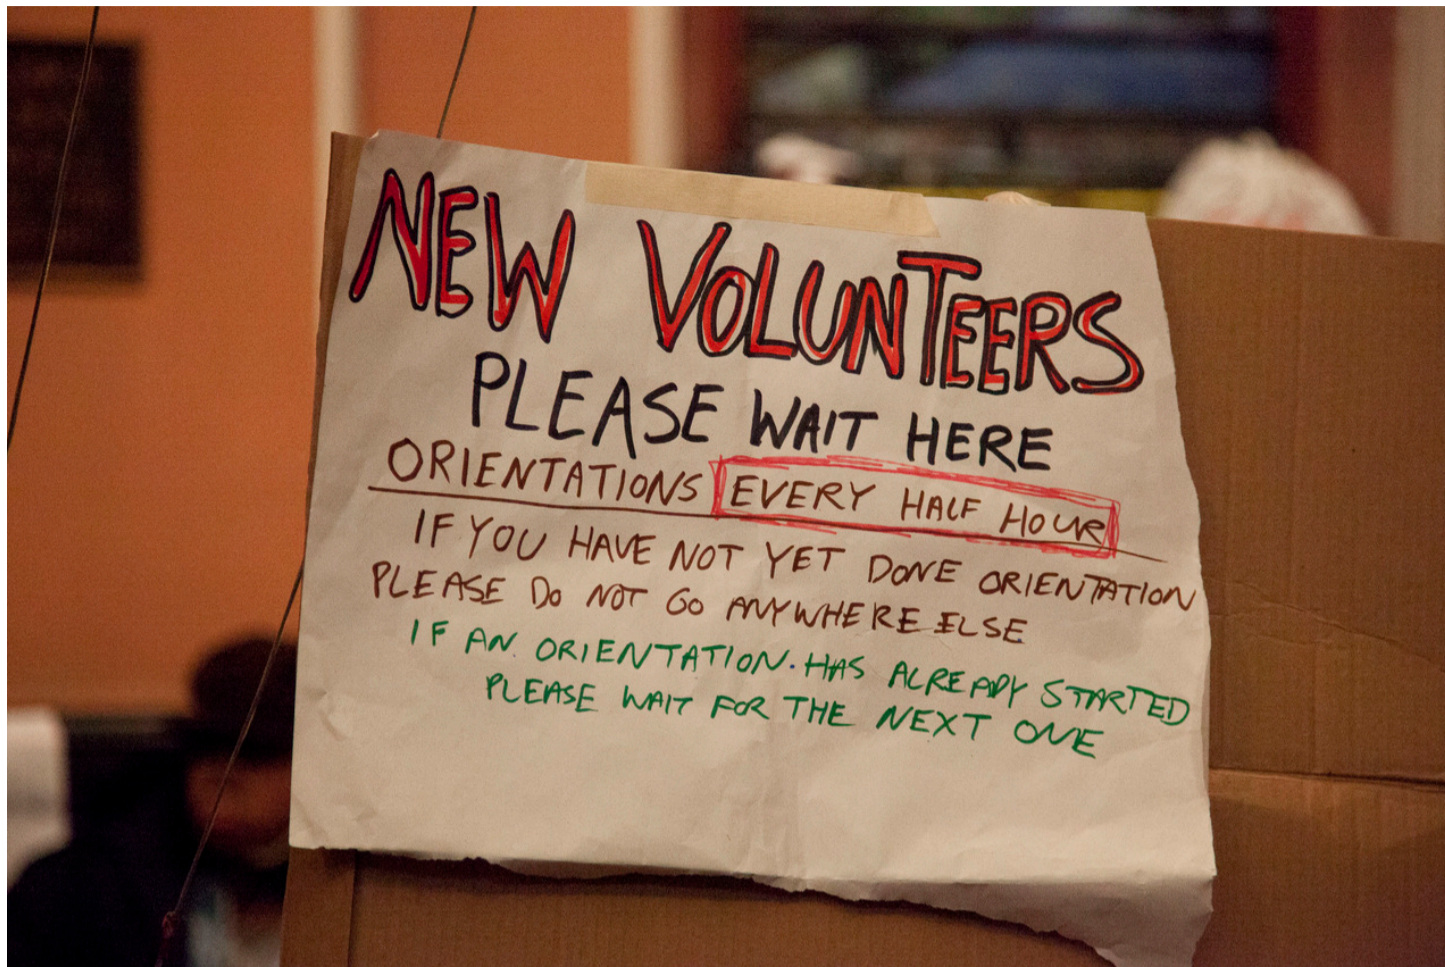 NEW VOLUNTEERS
PLEASE WAIT HERE
ORIENTATIONS EVERY HALF HOUR
IF YOU HAVE NOT YET DONE ORIENTATION
PLEASE DO NOT GO ANYWHERE ELSE
IF AN ORIENTATION HAS ALREADY STARTED
PLEASE WAIT FOR THE NEXT ONE